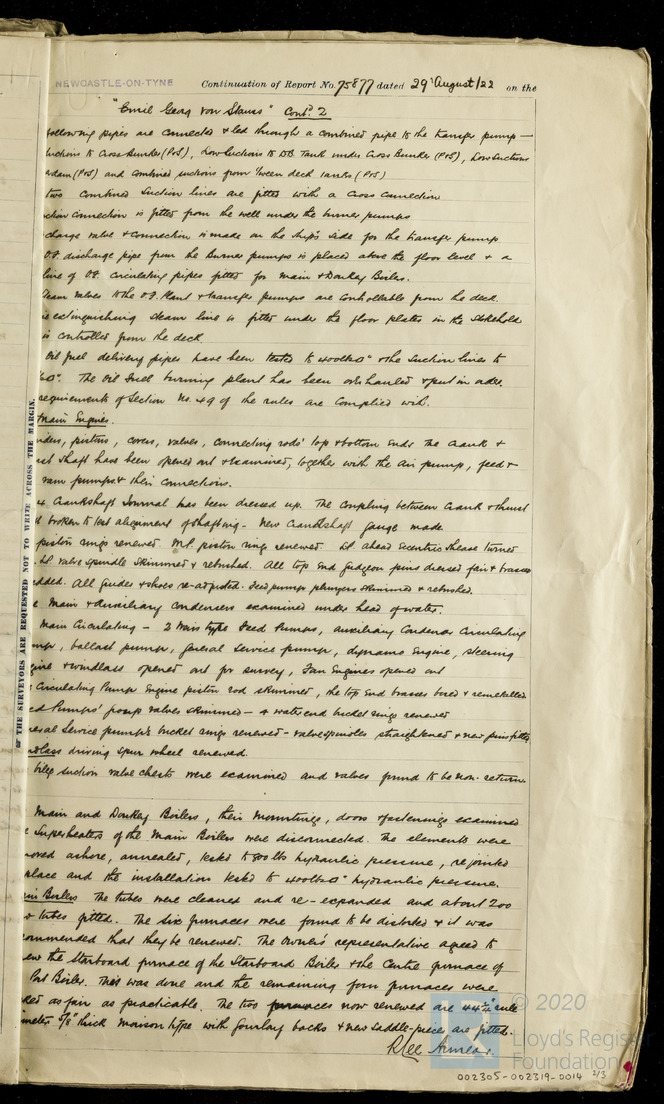 NEWCASTLE-ON-TYNE Continuation of Report No. 75877 dated 29 August/22 on the
"Emil Georg von Stauss" Contd. 2
following pipes are connected & led through a combined pipe to the transfer pump —
Suctions to Cross Bunker (P&S), Low Suctions to D.B. Tank under Cross Bunker (P&S), Low Suctions
(P&S) and combined suctions from 'tween deck tanks (P&S)
two combined suction lines are fitted with a cross connection
connection is fitted from the well under the burner pumps
charge valve & connection is made on the ship's side for the transfer pump
O.F. discharge pipe from the burner pumps is placed above the floor level & a
line of O.F. circulating pipes fitted for main & Donkey Boilers.
Steam valves to the O.F. Plant & transfer pumps are controllable from the deck.
extinguishing steam line is fitted under the floor plates in the stokehold
is controlled from the deck
Oil fuel delivery pipes have been tested to 400lbs□" & the suction lines to
The Oil Fuel burning plant has been overhauled & put in order.
requirements of Section No. 49 of the rules are complied with.
Main Engines.
pistons, covers, valves, connecting rods' top & bottom ends the crank &
shaft have been opened out & examined, together with the air pump, feed &
pumps & their connections.
4 Crankshaft Journal has been dressed up. The coupling between crank & thrust
broken to test alignment of shafting - New crankshaft gauge made.
piston rings renewed. M.P. piston rings renewed. LP ahead eccentric sheave turned
valve spindle skimmed & rebushed. All top end gudgeon pins dressed fair & brasses
All guides & shoes re-adjusted. Feed pump plungers skimmed & rebushed.
Main & Auxiliary condensers examined under head of water.
Main Circulating - 2 Weirs type Feed Pumps, auxiliary Condenser Circulating
ballast pump, general service pump, dynamo Engine, steering
& windlass opened out for survey, Fan Engines opened out
Circulating Pump Engine piston rod skimmed, the top end brasses bored & remetalled
Pumps' pump valves skimmed - 4 water end bucket rings renewed
Service pump's bucket rings renewed - valve spindles straightened & new pins fitted
driving spur wheel renewed.
bilge suction valve chests were examined and valves found to be non-return.
Main and Donkey Boilers, their mountings, doors & fastenings examined
Superheaters of the Main Boilers were disconnected. The elements were
ashore, annealed, tested to 800 lbs hydraulic pressure, rejointed
place and the installation tested to 400lbs□" hydraulic pressure.
Boilers The tubes were cleaned and re-expanded and about 200
tubes fitted. The six furnaces were found to be distorted & it was
recommended that they be renewed. The Owner's representative agreed to
the Starboard furnace of the Starboard Boiler & the Centre furnace of
Port Boiler. This was done and the remaining four furnaces were
as fair as practicable. The two furnaces now renewed are
5/8" thick Morison type with gourlay backs & new saddle-pieces are fitted.
OF THE SURVEYORS ARE REQUESTED NOT TO WRITE ACROSS THE MARGIN.
© 2020
Lloyd's Register
Foundation
002305-002319-0014 2/3